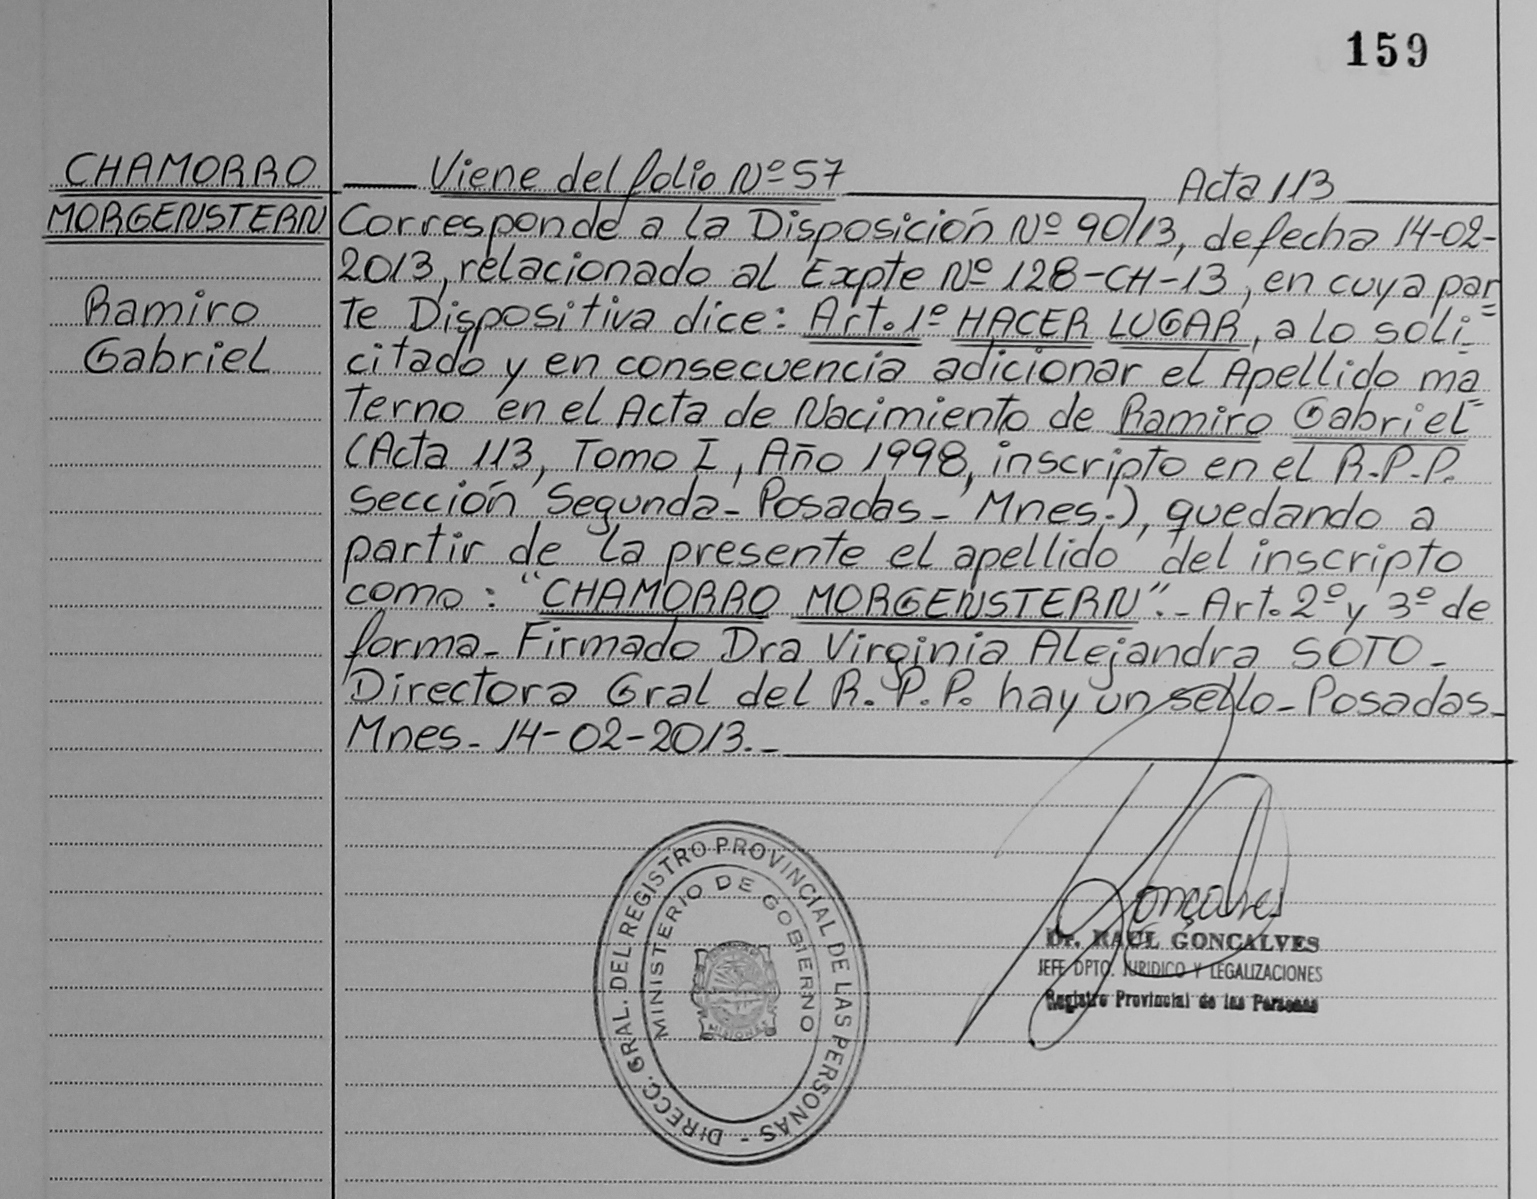 159
CHAMORRO
MORGENSTERN
Ramiro
Gabriel
Viene del folio Nº 57 Acta 113
Corresponde a la Disposición Nº 90/13, de fecha 14-02-
2013, relacionado al Expte Nº 128-CH-13, en cuya par
te Dispositiva dice: Art. 1º HACER LUGAR, a lo soli
citado y en consecuencia adicionar el Apellido ma
terno en el Acta de Nacimiento de Ramiro Gabriel
(Acta 113, Tomo I, Año 1998, inscripto en el R.P.P.
sección Segunda - Posadas - Mnes.), quedando a
partir de la presente el apellido del inscripto
como: "CHAMORRO MORGENSTERN".- Art. 2º y 3º de
forma - Firmado Dra Virginia Alejandra SOTO -
Directora Gral del R.P.P. hay un sello - Posadas -
Mnes - 14-02-2013.-
DIRECC. GRAL. DEL REGISTRO PROVINCIAL DE LAS PERSONAS -
MINISTERIO DE GOBIERNO
MISIONES
Gonçalves
Dr. RAUL GONCALVES
JEFE DPTO. JURIDICO Y LEGALIZACIONES
Registro Provincial de las Personas